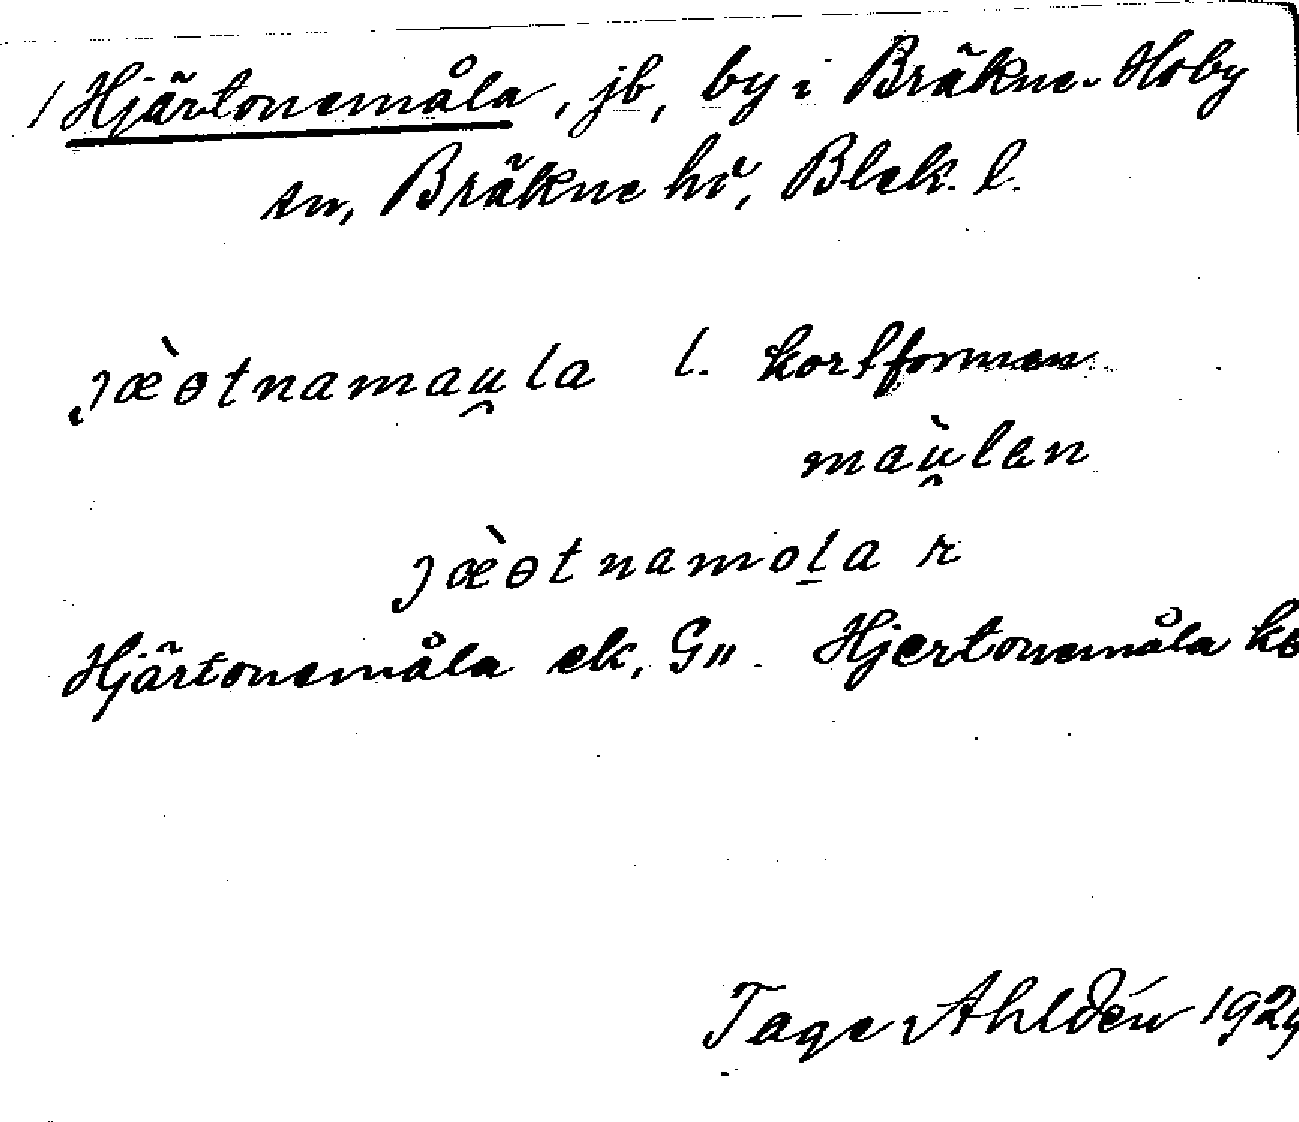 / Hjärtonemåla, jb, by i Bräkne-Hoby
sn, Bräkne hd, Blek. l.
jæ̀ɵtnamau̯la l. kortformen
maù̯len
jæ̀ɵtnamoḻa r
Hjärtonemåla ek, G". Hjertonemåla
Tage Ahldén 1929